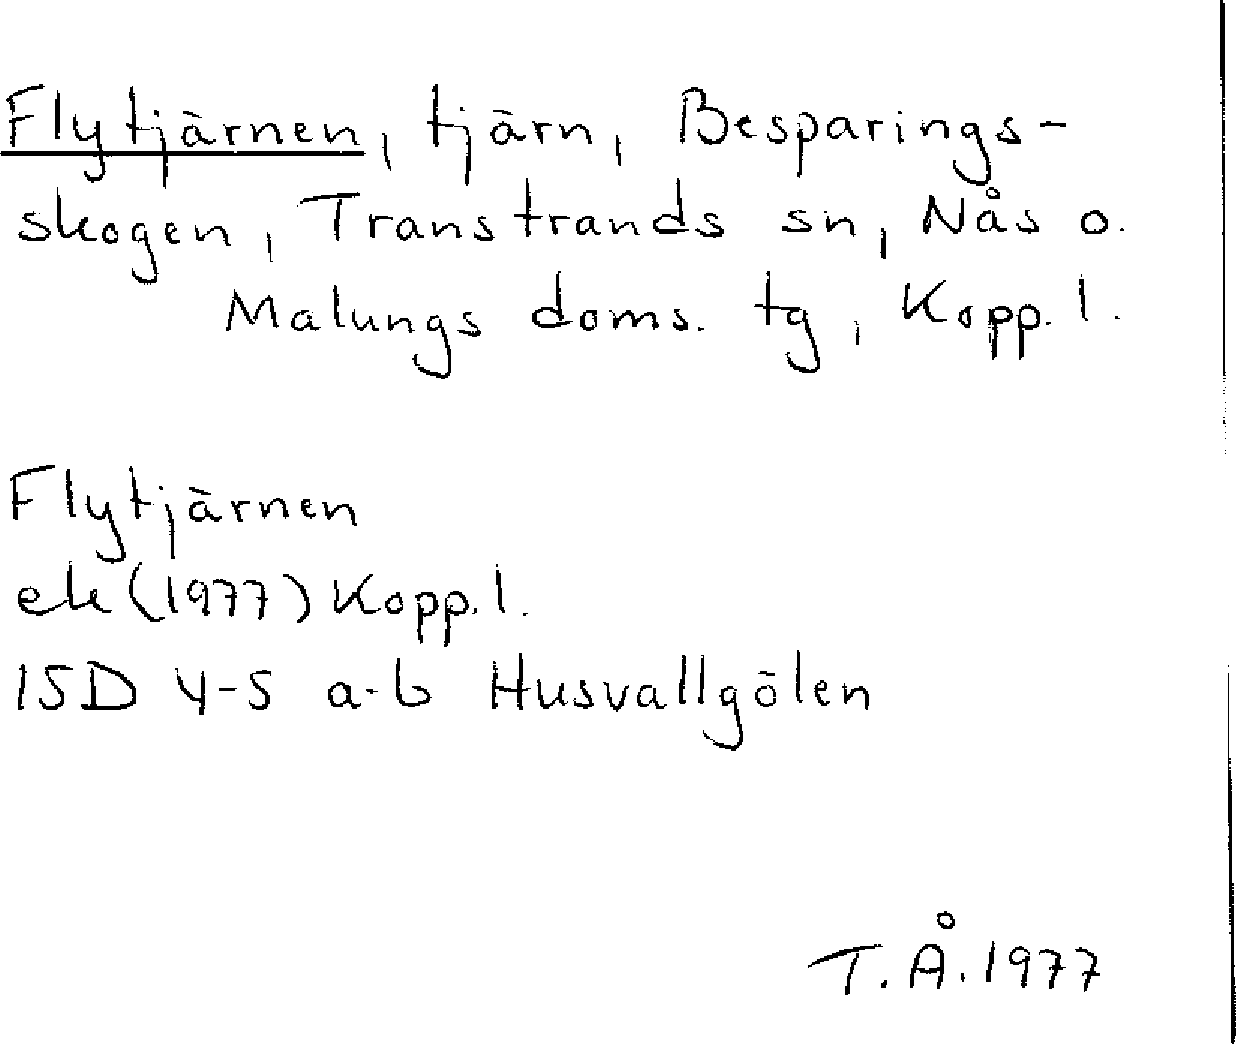 Flytjärnen, tjärn, Besparings-
skogen, Transtrands sn, Nås o.
Malungs doms. tg, Kopp. l.
Flytjärnen
ek (1977) Kopp. l.
15D 4-5 a-b Husvallgölen
T. Å. 1977